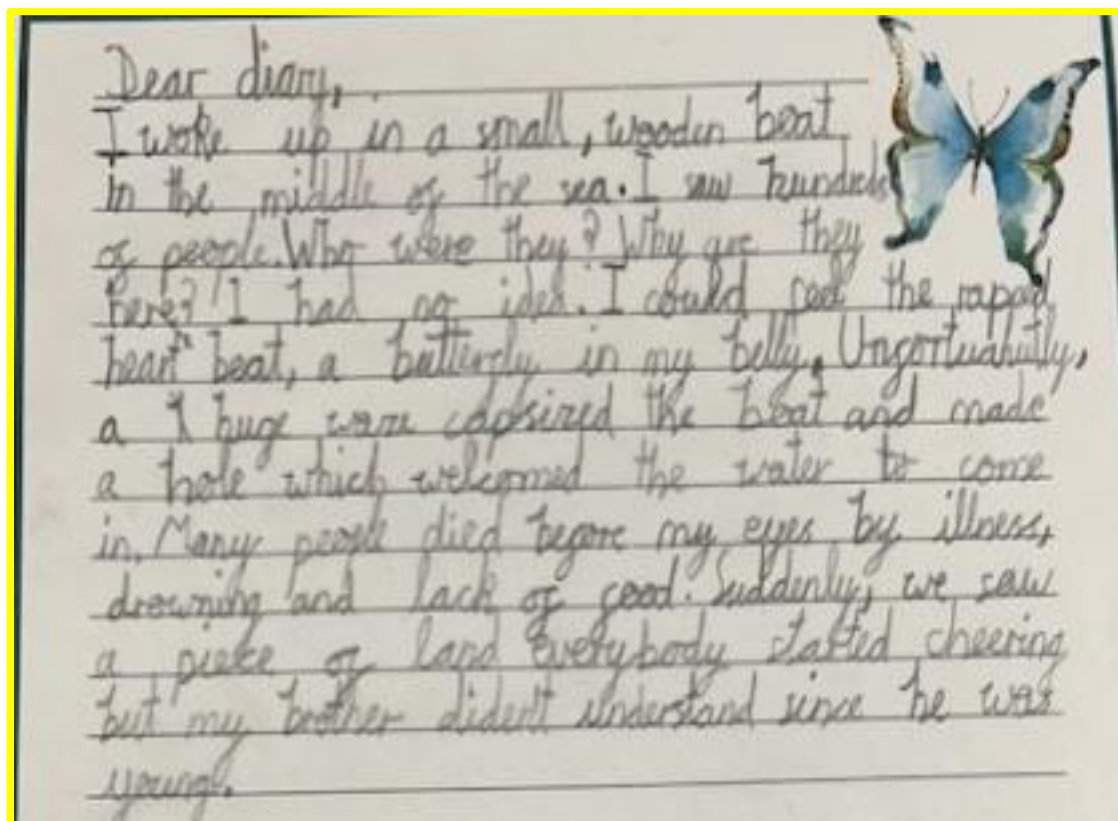 Dear diary,
I woke up in a small, wooden boat
in the middle of the sea. I saw hundreds
of people. Who were they? Why are they
here? I had no idea. I could feel the rapped
heart beat, a butterfly in my belly. Unfortuanutly,
a huge wave capsized the boat and made
a hole which welcomed the water to come
in. Many people died before my eyes by illness,
drowning and lack of food. Suddenly, we saw
a pieke of land everybody started cheering
but my brother dident understand since he was
young.